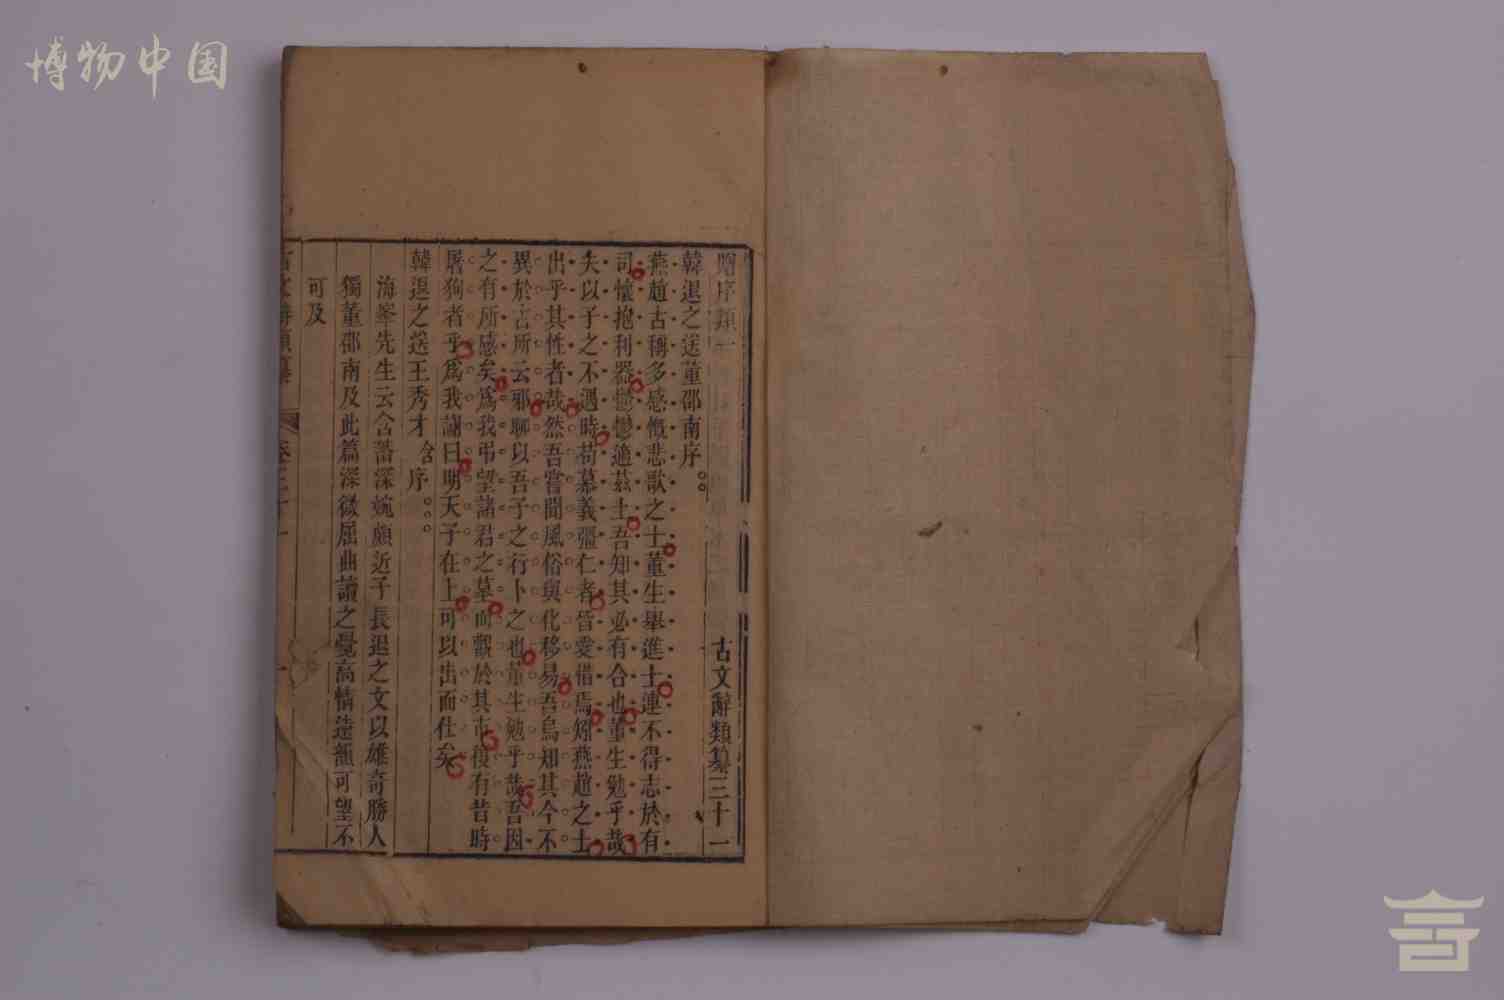 博物中国
贈序類一 古文辭類纂三十一
韓退之送董邵南序
燕趙古稱多感慨悲歌之士董生舉進士連不得志於有
司懷抱利器鬱鬱適茲土吾知其必有合也董生勉乎哉
夫以子之不遇時苟慕義彊仁者皆愛惜焉矧燕趙之士
出乎其性者哉然吾嘗聞風俗與化移易吾烏知其今不
異於古所云邪聊以吾子之行卜之也董生勉乎哉吾因
之有所感矣爲我弔望諸君之墓而觀於其市復有昔時
屠狗者乎爲我謝曰明天子在上可以出而仕矣
韓退之送王秀才含序
海峯先生云含蓄深婉頗近子長退之文以雄奇勝人
獨董邵南及此篇深微屈曲讀之覺高情遠韻可望不
可及
古文辭類纂 卷三十一 一